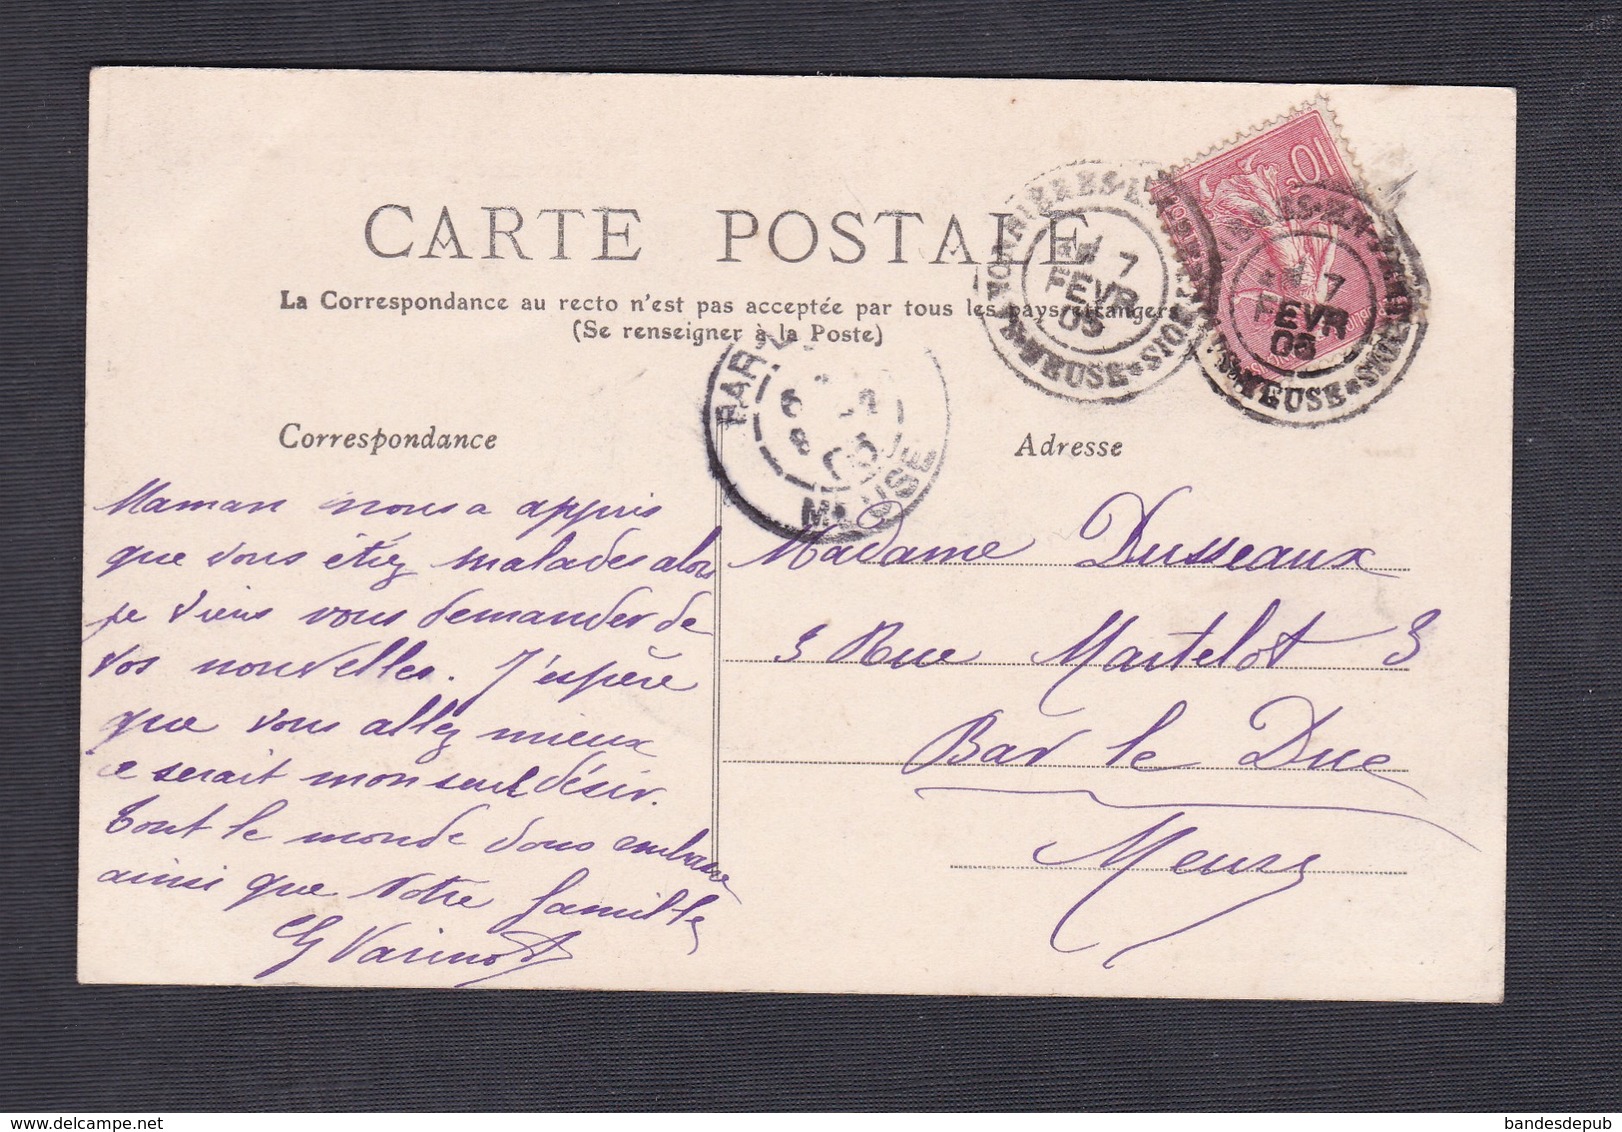 CARTE POSTALE
La Correspondance au recto n'est pas acceptée par tous les pays étrangers
(Se renseigner à la Poste)
7
FEVR
05
MEUSE
7
FEVR
MEUSE
10
BAR
MEUSE
Correspondance
Maman nous a appris
que vous étiez malades alors
je viens vous demander de
vos nouvelles. J'espère
que vous allez mieux
ce serait mon seul désir.
Tout le monde vous embrasse
ainsi que votre famille
Adresse
Madame Dusseaux
3 Rue Martelot 3
Bar le Duc
Meuse
delcampe.net
bandesdepub